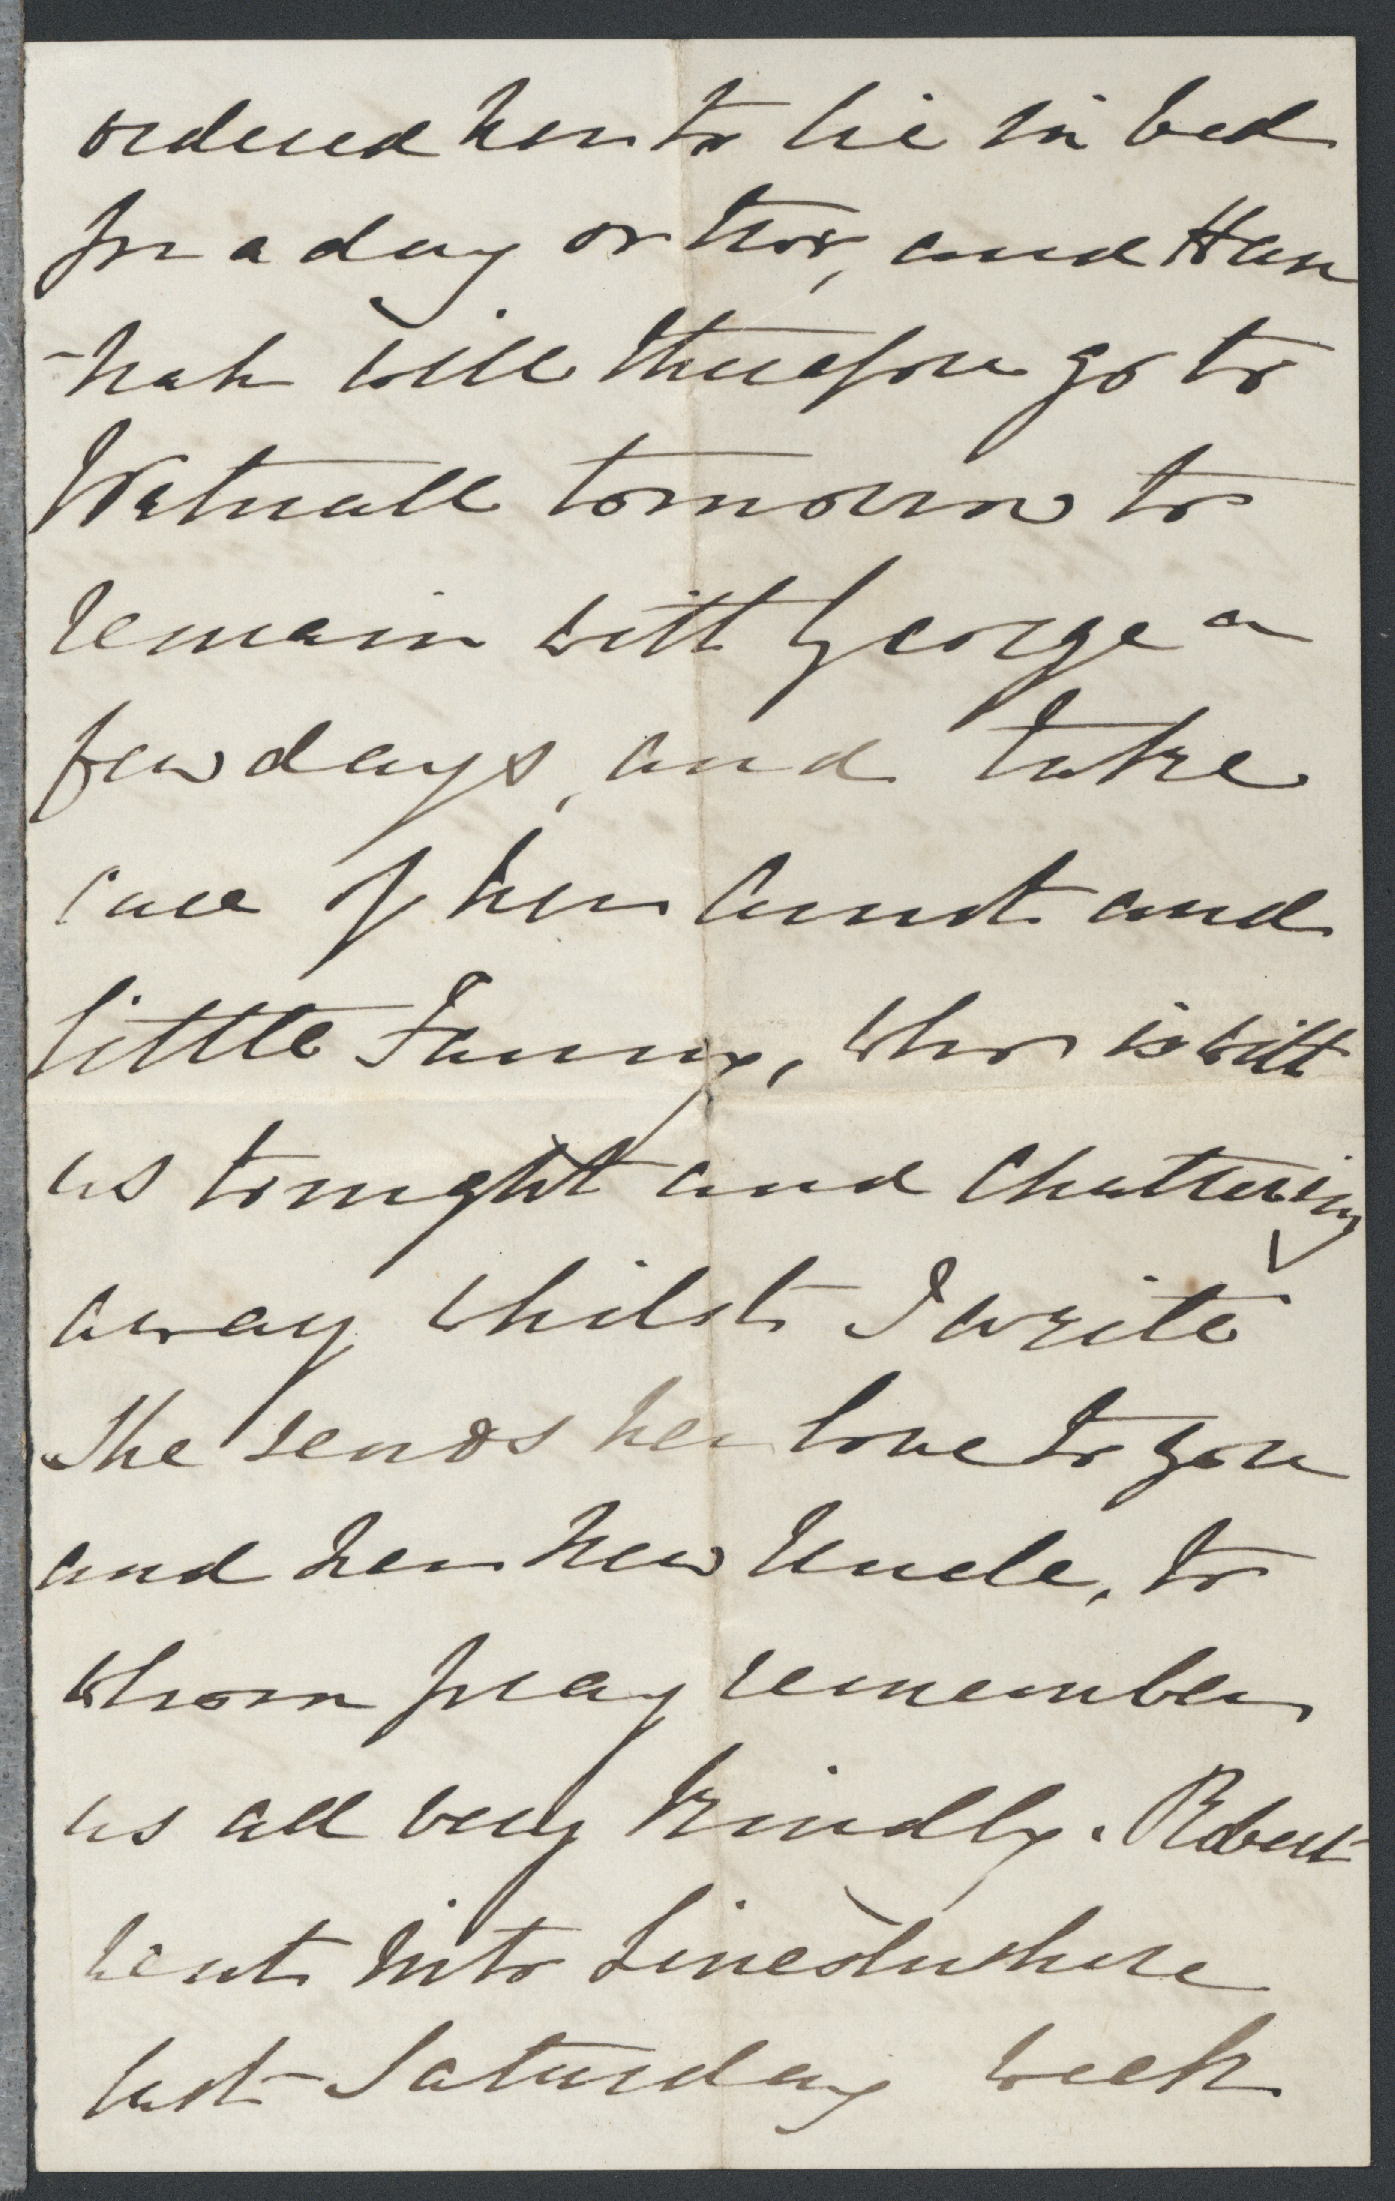 ordered her to lie in bed
for a day or two, and Han
-nah will therefore go to
Watnall tomorrow to
remain with George a
few days, and take
care of her Aunt and
little Fanny, who is with
us tonight and chattering
away whilst I write
She sends her love to you
and her new Uncle, to
whom pray remember
us all very kindly. Robert
went into Lincolnshire
last Saturday week